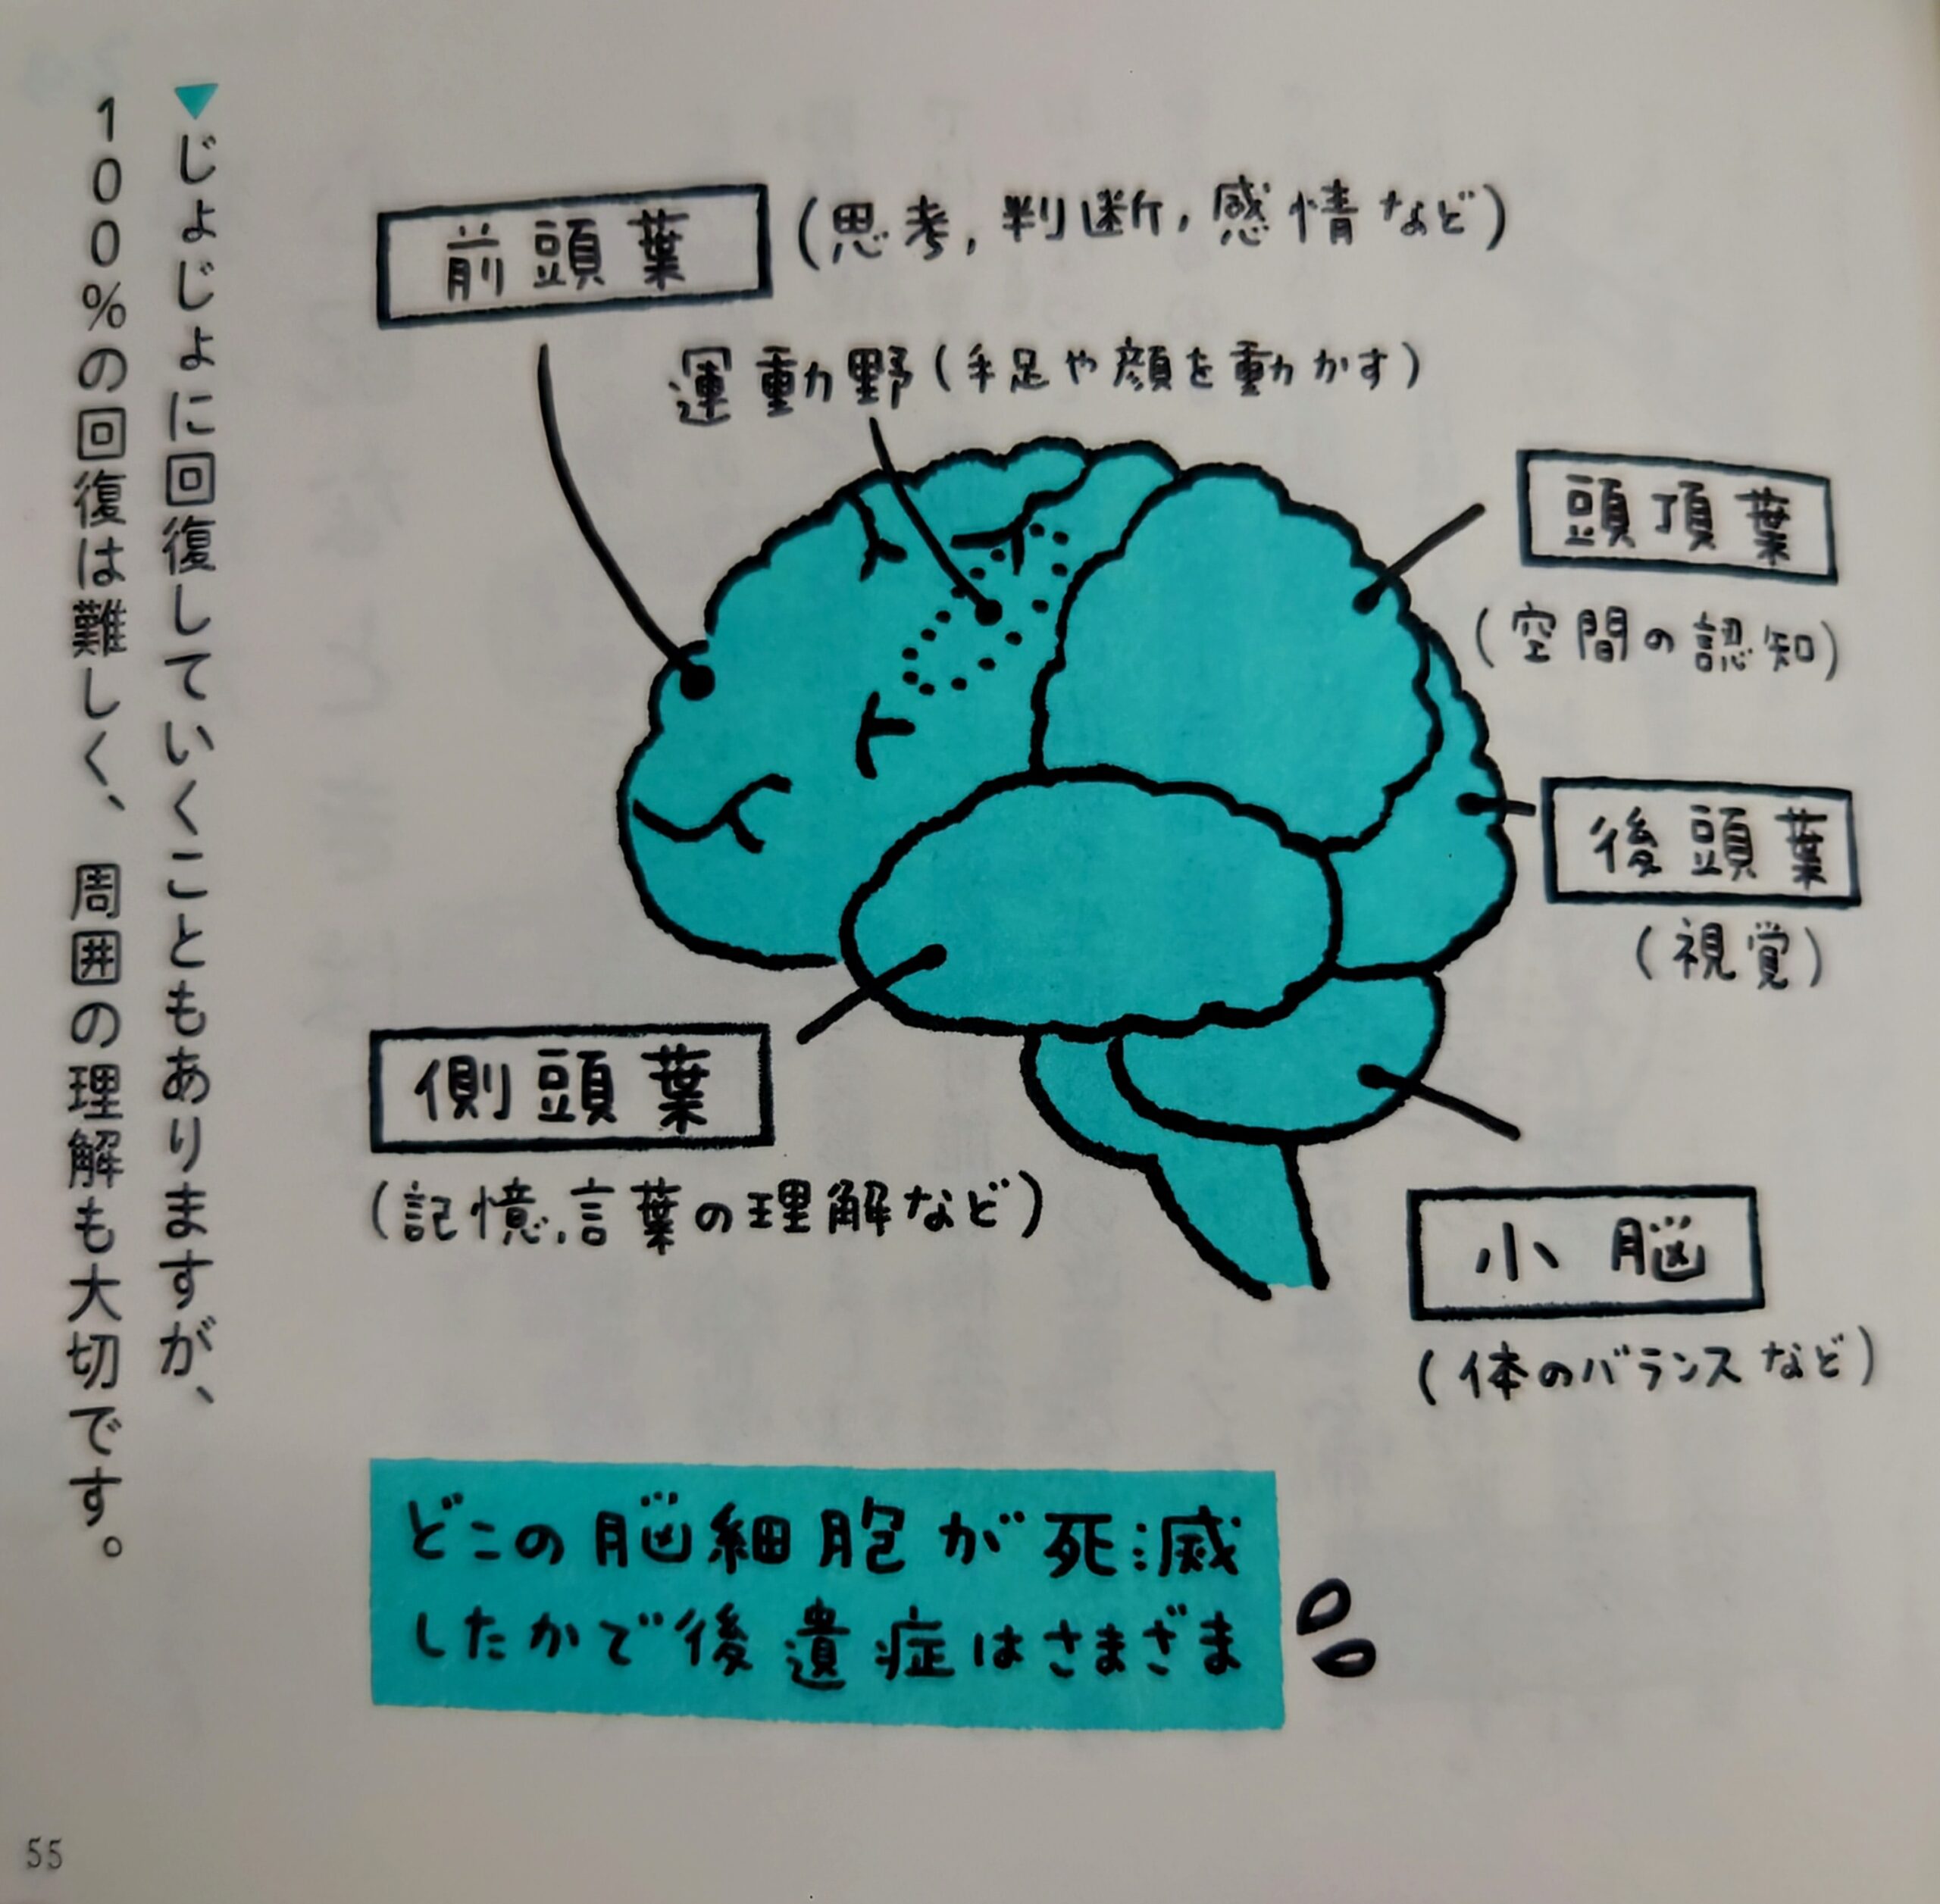 前頭葉
(思考,判断,感情など)
運動野(手足や顔を動かす)
頭頂葉
(空間の認知)
後頭葉
(視覚)
側頭葉
(記憶,言葉の理解など)
小脳
(体のバランスなど)
どこの脳細胞が死滅
したかで後遺症はさまざま
▼じょじょに回復していくこともありますが、
100%の回復は難しく、周囲の理解も大切です。
55